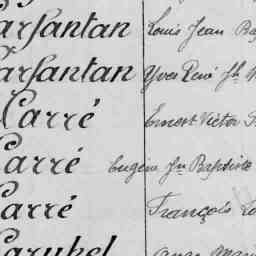 arfantan Louis Jean Ba
arfantan Yves René Jh
Carré Ernest Victor
Carré Eugène Jn Baptiste
arré François Lo